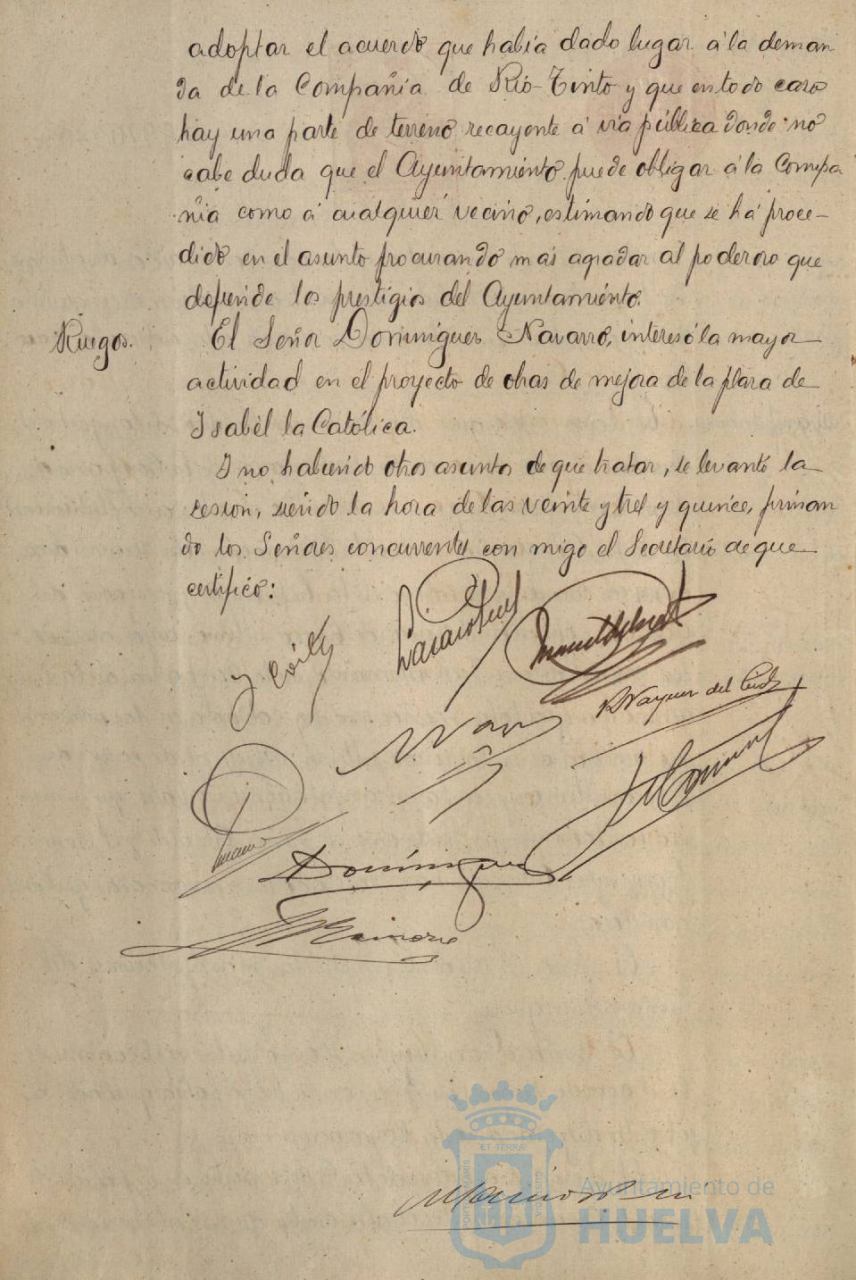 adoptar el acuerdo que había dado lugar á la deman
da de la Compañia de Rio-Tinto y que en todo caso
hay una parte de terreno recayente á via pública donde no
cabe duda que el Ayuntamiento puede obligar á la Compa
ñia como á cualquier vecino, estimando que se há proce-
dido en el asunto procurando mas agradar al poderoso que
defender los prestigios del Ayuntamiento.
Ruegos.
El Señor Dominguez Navarro, interesó la mayor
actividad en el proyecto de obras de mejora de la plaza de
Isabel la Católica.
Y no habiendo otros asuntos de que tratar, se levantó la
sesion, siendo la hora de las veinte y tres y quince, firman
do los Señores concurrentes con migo el Secretario de que
certifico:
Vazquez del Cid
Domínguez
ET TERRAE
Ayuntamiento de
HUELVA